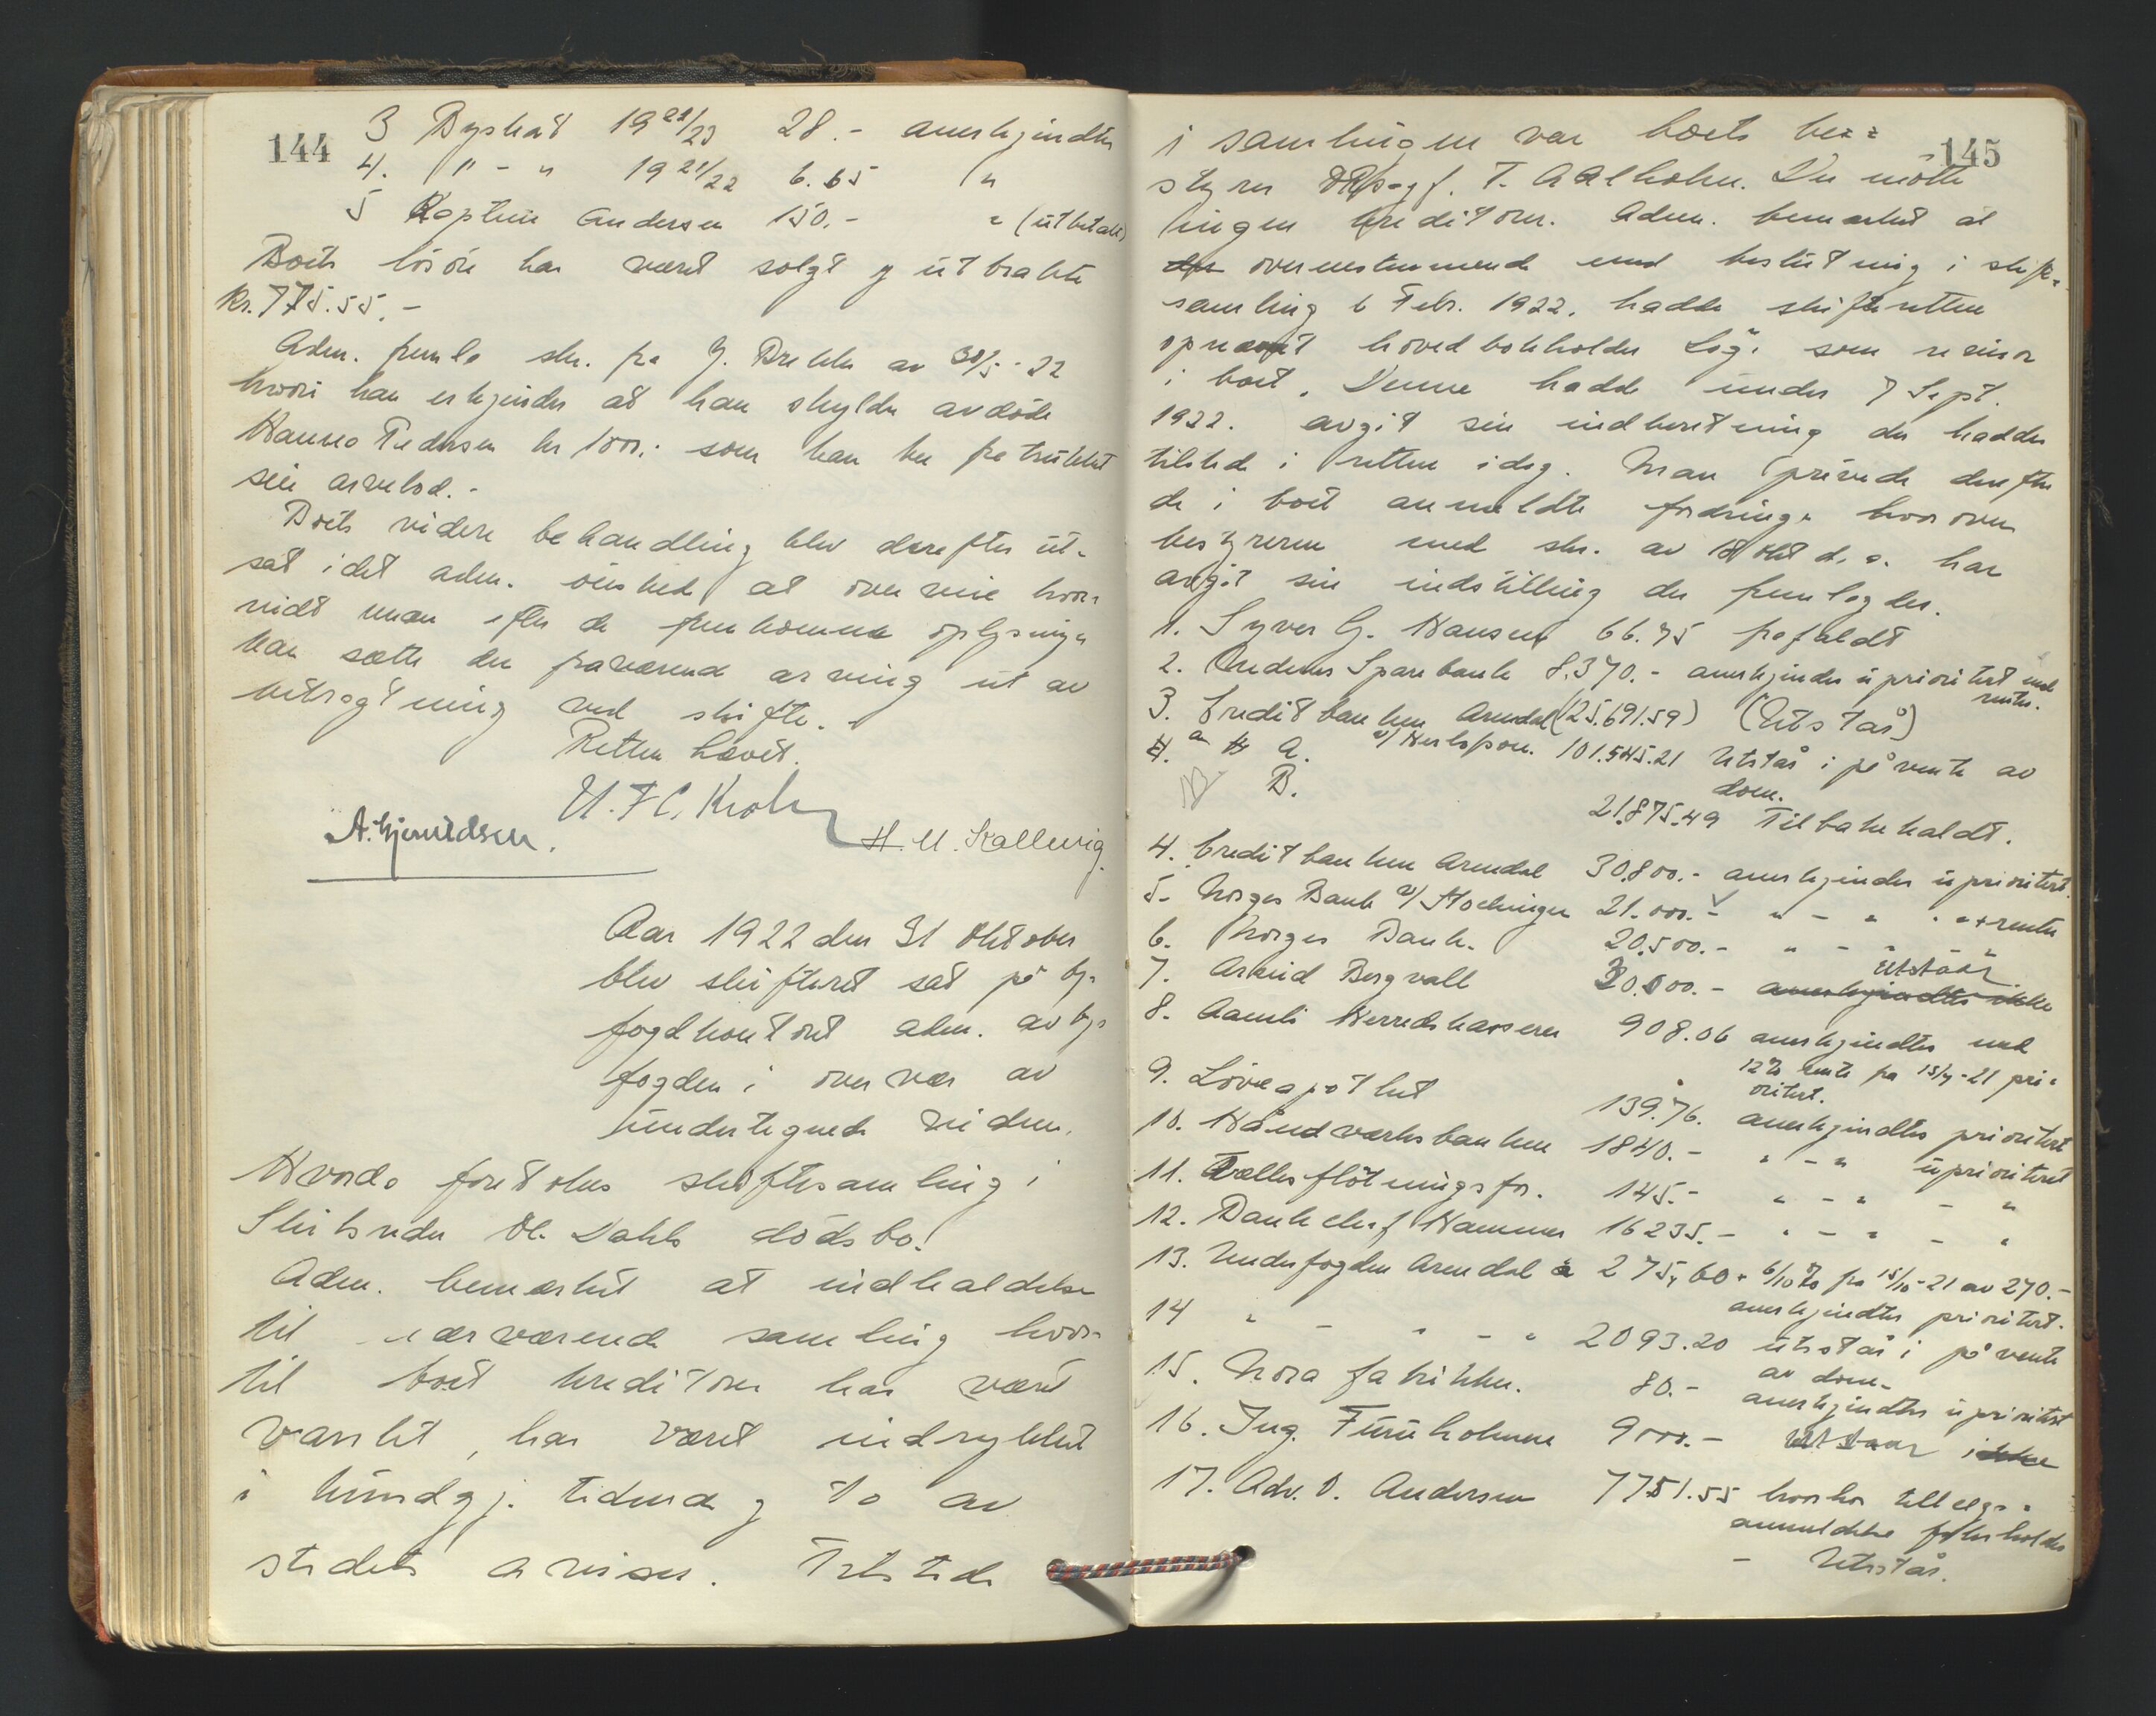 144
3 Byskat 19 22/23 28.- anerkjendtes
4. " - " 19 21/22 6.65 "
5 Kaptein Andersen 150.- " (utbetalt)
Boets løsøre har været solgt og utbrakte
Kr. 775.55.-
Adm. fremla skr. fra J. Brekke av 30/5-22
hvori han erkjender at han skylder avdøde
Hanna Pedersen kr 100.- som han har fratrukket
sin arvelod.-
Boets videre behandling blev derefter ut-
sat idet adm. ønsket at overveie hvor-
vidt man efter de fremkomne oplysninger
kan sætte den fraværende arving ut av
betragtning ved skiftet.
Retten hævet.
U. F. C. Krohn
A. Gjeruldsen. H. M. Kallevig.
Aar 1922 den 31 oktober
blev skifteret sat på by-
fogdkontoret adm. av by-
fogden i overvær av
undertegnede vidner.
Hvorda foretokes skiftesamling i
Skibsreder Ol. Dahls dødsbo.
Adm. bemerket at indkaldelse
til nærværende samling hvor-
til boets kreditorer har været
varslet, har været indrykket
i kundgj. tidende og to av
stedets aviser. Tilstede
145
i samlingen var boets be-
styrer ORsagf. T. Aalholm. Der møtte
ingen kreditorer. Adm. bemerket at
der overensstemmende med beslutning i skifte-
samling 6 Febr. 1922. hadde skifteretten
opnævnt hovedbokholder som revisor
i boet. Denne hadde under 7 Sept.
1922. avgit sin indberetning der hadde
tilstede i retten idag. Man prøvede derefter
de i boet anmeldte fordringer hvorover
bestyreren med skr. av 18 okt d.a. har
avgit sin indstilling der fremlegdes.
1. Syver G. Hansen 66.75 frafaldt
2. Vredens Sparebank 8.370.- anerkjendes uprioritert med
renter.
3. Kreditbanken Arendal (25.691.59) (Utstår)
A. v/ Herlofson. 101.545.21 Utstår i påvente av
dom.
B. 21.875.49 Tilbakekaldt.
4. Creditbanken Arendal 30.800.- anerkjendes uprioritert
5. Norges Bank v/ 21.000.- " - " " + renter
6. Norges Bank. 20.500.- " - "
utstaar
7. Arvid Bergvall 30.000.- anerkjendtes ikke
8. Aamli Herredskasserer 908.06 anerkjendtes med
12% rente fra 15/9-21 pri-
oritert.
9. Løveapotheket 139.76. anerkjendtes prioritert
10. Håndverksbanken 1840.- " - " uprioritert
11. Fælles fløtningsfor. 145.- " - " - "
12. Bankchef Hammer 16235.- " - " - "
13. Underfogden Arendal 275,60 + 6/10 % fra 15/10-21 av 270.-
anerkjendtes prioritert.
14 " - " - " 2093.20 utstår i påvente
av dom.-
15. Nora fabrikker. 80.- anerkjendtes uprioritert
16. Ing. Furuholmen 9000.- Utstaar ikke
17. Adv. O. Andersen 7751.55 hvorhos tillegs-
anmeldelse forbeholdes
- Utstår.